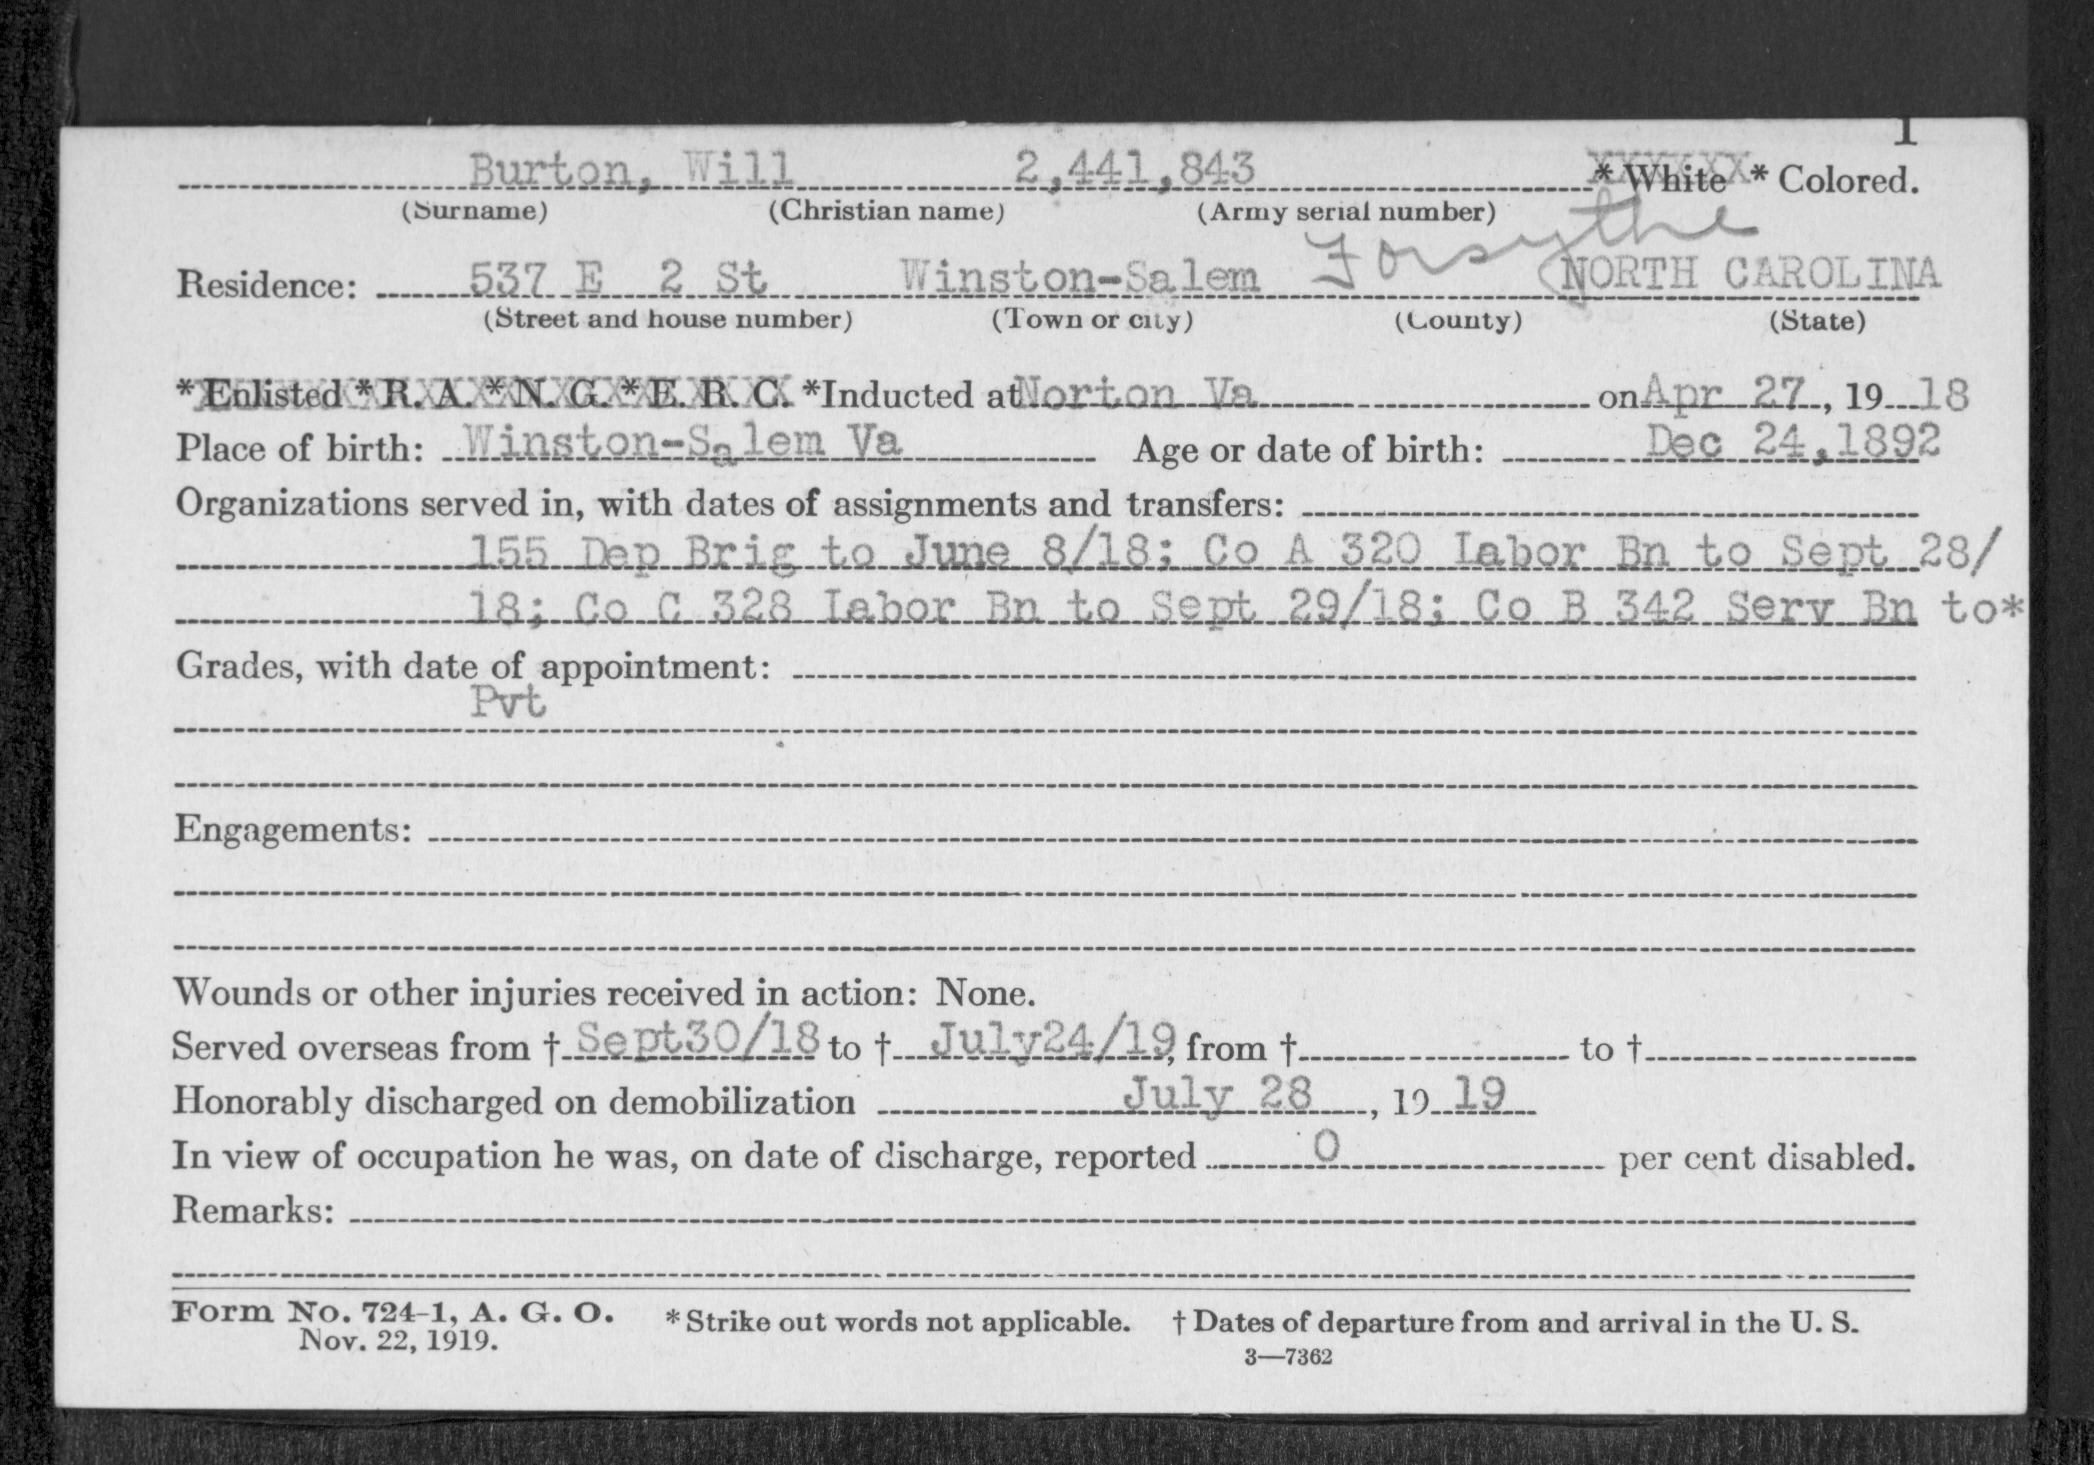 1
Burton, Will 2,441,843 * White * Colored.
(Surname) (Christian name) (Army serial number)
Residence: 537 E 2 St Winston-Salem Forsythe NORTH CAROLINA
(Street and house number) (Town or city) (County) (State)
* Enlisted * R. A. * N. G. * E. R. C. * Inducted at Norton Va on Apr 27, 19 18
Place of birth: Winston-Salem Va Age or date of birth: Dec 24, 1892
Organizations served in, with dates of assignments and transfers:
155 Dep Brig to June 8/18; Co A 320 Labor Bn to Sept 28/
18; Co C 328 Labor Bn to Sept 29/18; Co B 342 Serv Bn to*
Grades, with date of appointment:
Pvt
Engagements:
Wounds or other injuries received in action: None.
Served overseas from † Sept30/18 to † July24/19, from † to †
Honorably discharged on demobilization July 28, 19 19
In view of occupation he was, on date of discharge, reported 0 per cent disabled.
Remarks:
Form No. 724-1, A. G. O. * Strike out words not applicable. † Dates of departure from and arrival in the U. S.
Nov. 22, 1919.
3—7362